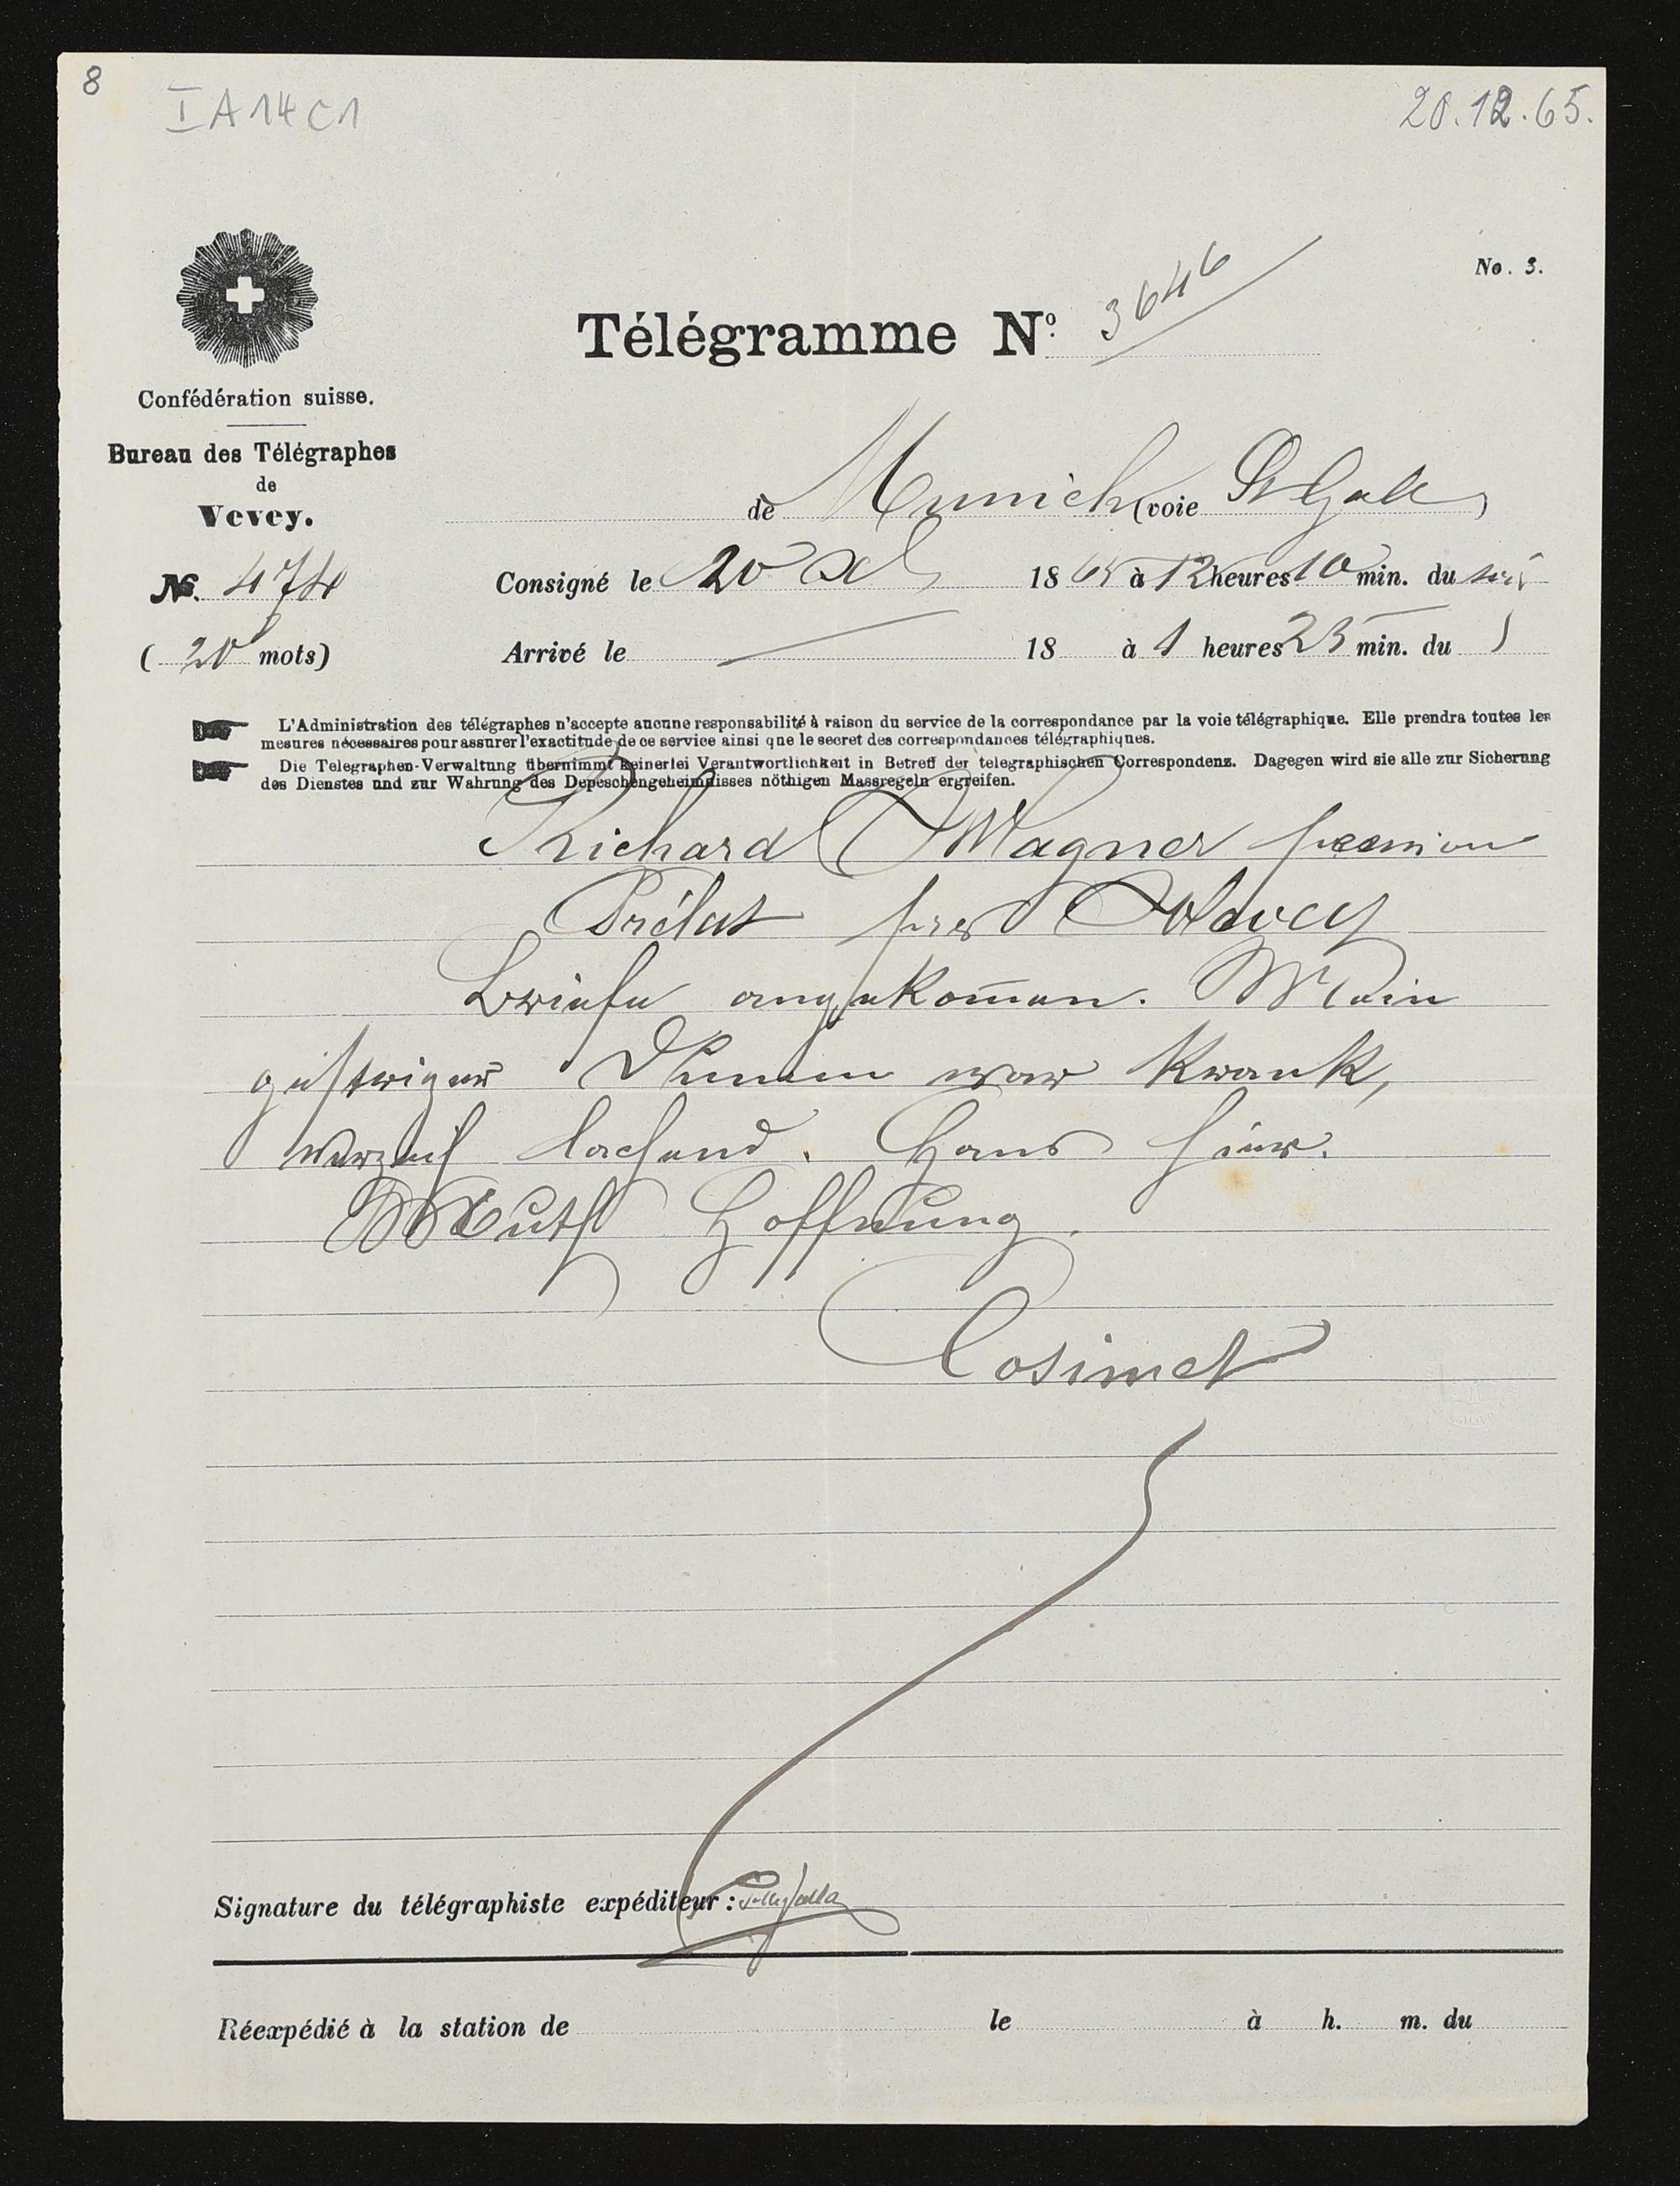 8
I A 14 C 1
20.12.65.
No. 3.
Télégramme Nº 3646
Confédération suisse.
Bureau des Télégraphes
de
Vevey.
de Munich (voie St Gall)
No. 474
Consigné le 20 1865 à 12 heures 10 min. du soir
(20 mots)
Arrivé le 18 à 1 heures 25 min. du
L'Administration des télégraphes n'accepte aucune responsabilité à raison du service de la correspondance par la voie télégraphique. Elle prendra toutes les
mesures nécessaires pour assurer l'exactitude de ce service ainsi que le secret des correspondances télégraphiques.
Die Telegraphen-Verwaltung übernimmt keinerlei Verantwortlichkeit in Betreff der telegraphischen Correspondenz. Dagegen wird sie alle zur Sicherung
des Dienstes und zur Wahrung des Depeschengeheimnisses nöthigen Massregeln ergreifen.
Richard Wagner pension
Prélat près Vevey
Briefe angekom̅en. Mein
gestriger war krank,
verzeih lachend. Hans hier.
Muth Hoffnung.
Cosima
Signature du télégraphiste expéditeur:
Réexpédié à la station de le à h. m. du